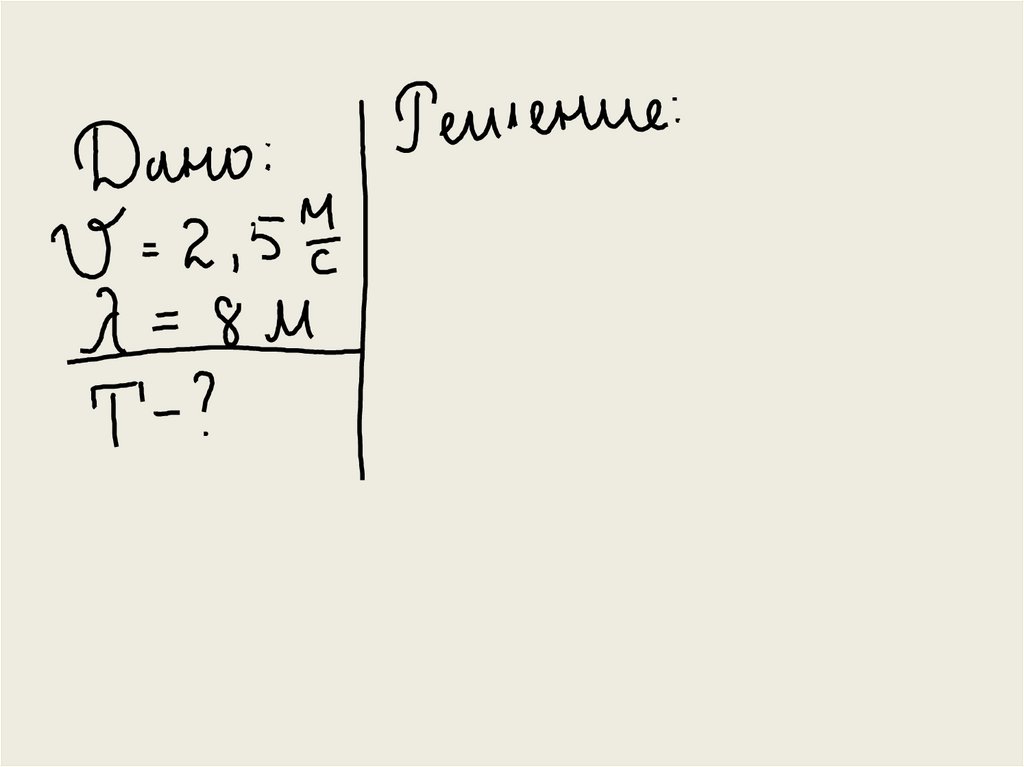 Дано:
υ = 2,5 м/с
λ = 8 м
T - ?
Решение: